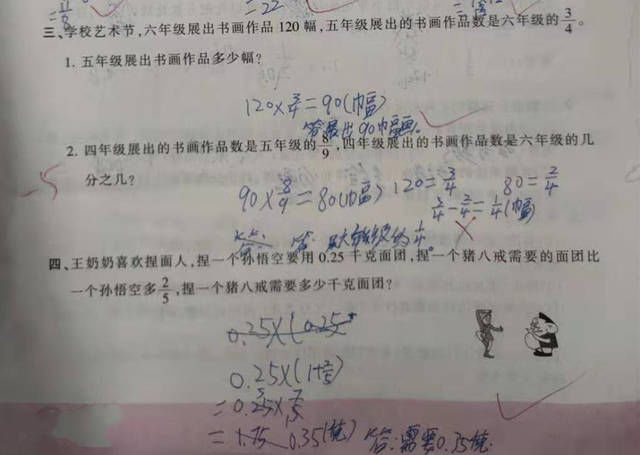 =22
三、学校艺术节,六年级展出书画作品120幅,五年级展出的书画作品数是六年级的3/4。
1. 五年级展出书画作品多少幅?
120×3/4=90(幅)
答:展出90幅画。
2. 四年级展出的书画作品数是五年级的8/9,四年级展出的书画作品数是六年级的几
分之几?
-5
90×8/9=80(幅) 120=3/4 80=2/4
3/4-2/4=1/4(幅)
答: 级的1/4。
四、王奶奶喜欢捏面人,捏一个孙悟空要用0.25千克面团,捏一个猪八戒需要的面团比
一个孙悟空多2/5,捏一个猪八戒需要多少千克面团?
0.25×(0.25
0.25×(1+2/5)
=0.25×7/5
=1.75 0.35(千克) 答:需要0.35千克.